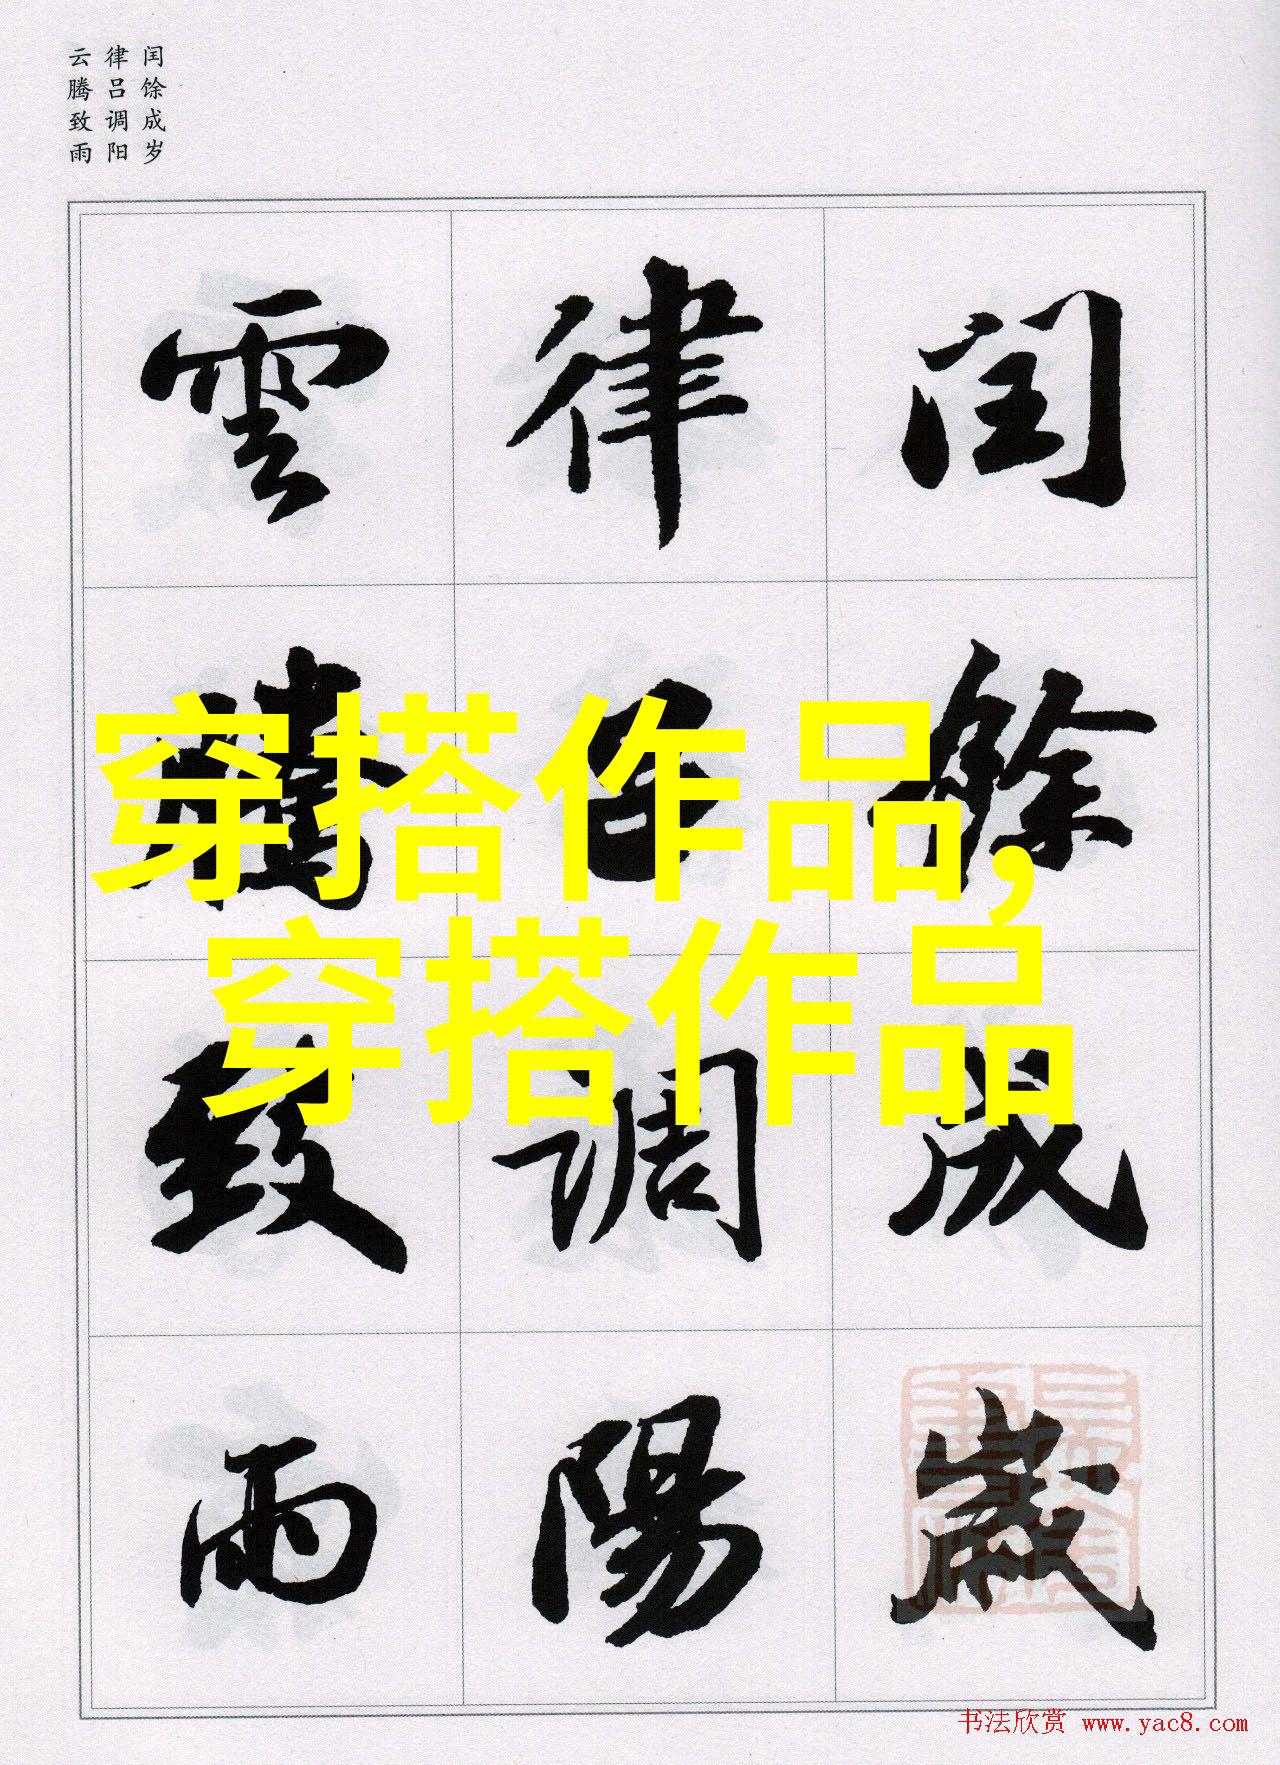 闰馀成岁
律吕调阳
云腾致雨
閏餘成歲
律吕調陽
雲騰致雨
穿搭作品,
穿搭作品
书法欣赏 www.yac8.com